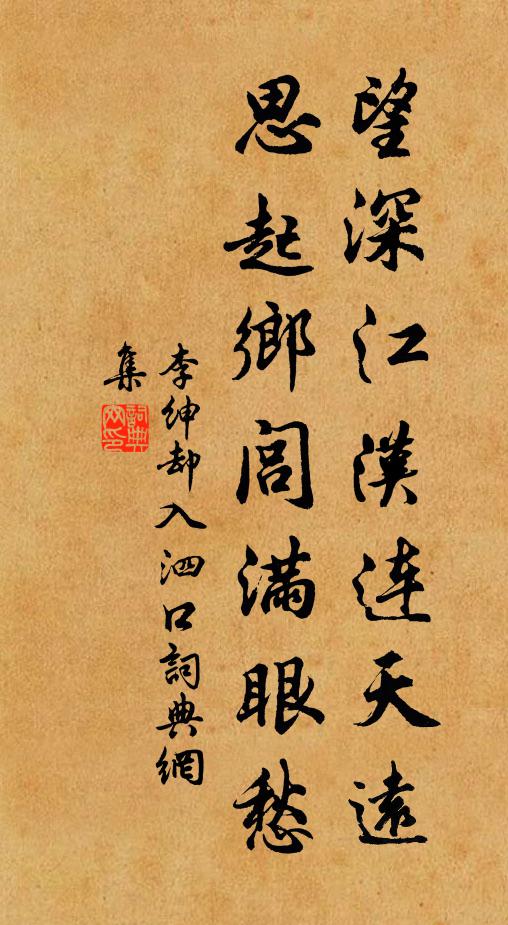 望深江漢連天遠
思起鄉閭滿眼愁
李紳却入泗口詞典網
集
詞典
网印